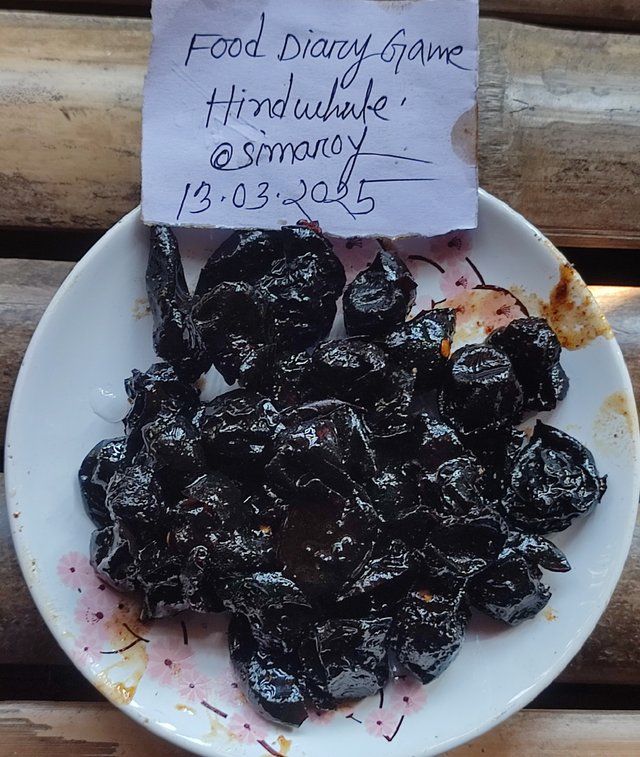 Food Diary Game
Hindwhale.
@simaroy
13.03.2025